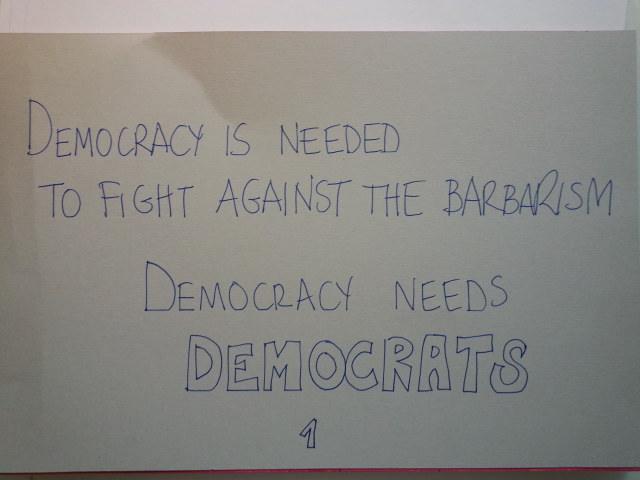 DEMOCRACY IS NEEDED
TO FIGHT AGAINST THE BARBARISM
DEMOCRACY NEEDS
DEMOCRATS
1